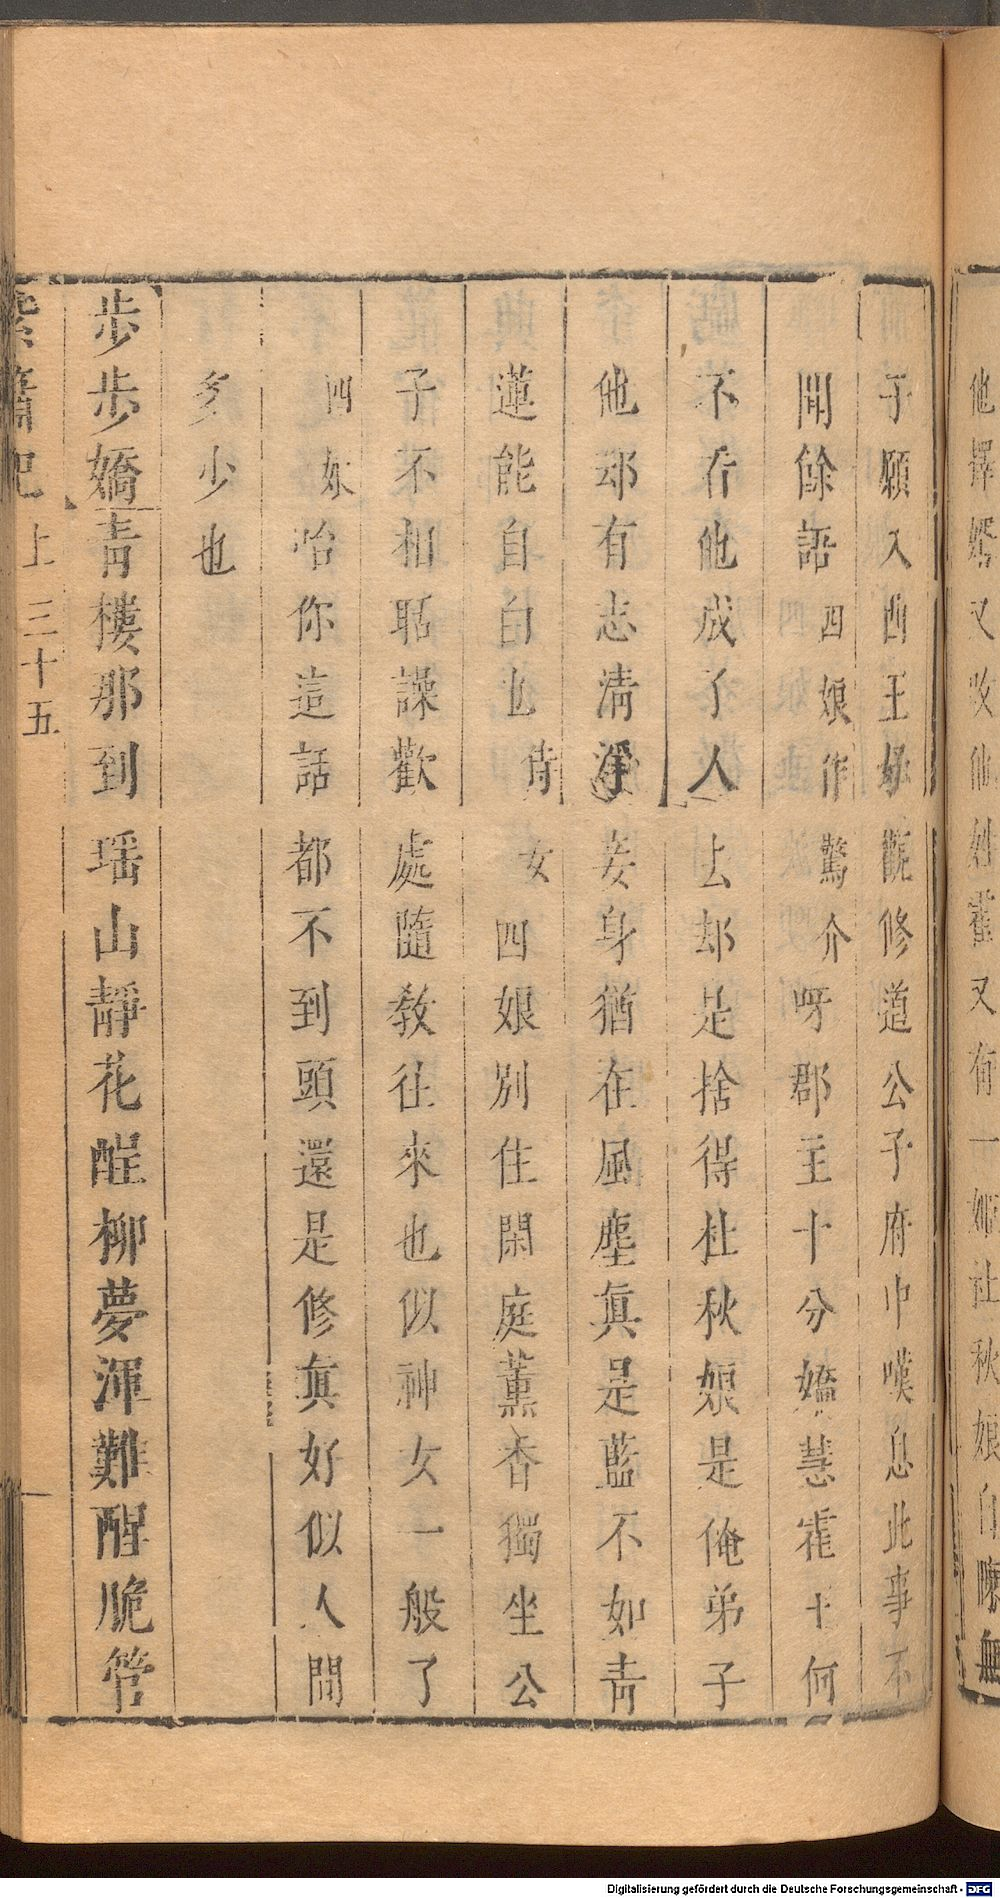 他擇婿又收他姓霍又有一姬杜秋娘自嗟無
子願入西王母觀修道公子府中嘆息此事不
閒餘語四娘作驚介呀郡主十分嬌慧霍王何
不看他成了人去却是捨得杜秋娘是俺弟子
他却有志清淨妾身猶在風塵真是藍不如青
蓮能自白也侍女四娘別住閑庭薰香獨坐公
子不相聒譟歡處隨教往來也似神女一般了
四娘怡你這話都不到頭還是修真好似人間
多少也
步步嬌青樓那到瑤山靜花醒柳夢渾難醒脆管
紫簫記上三十五
Digitalisierung gefördert durch die Deutsche Forschungsgemeinschaft - DFG